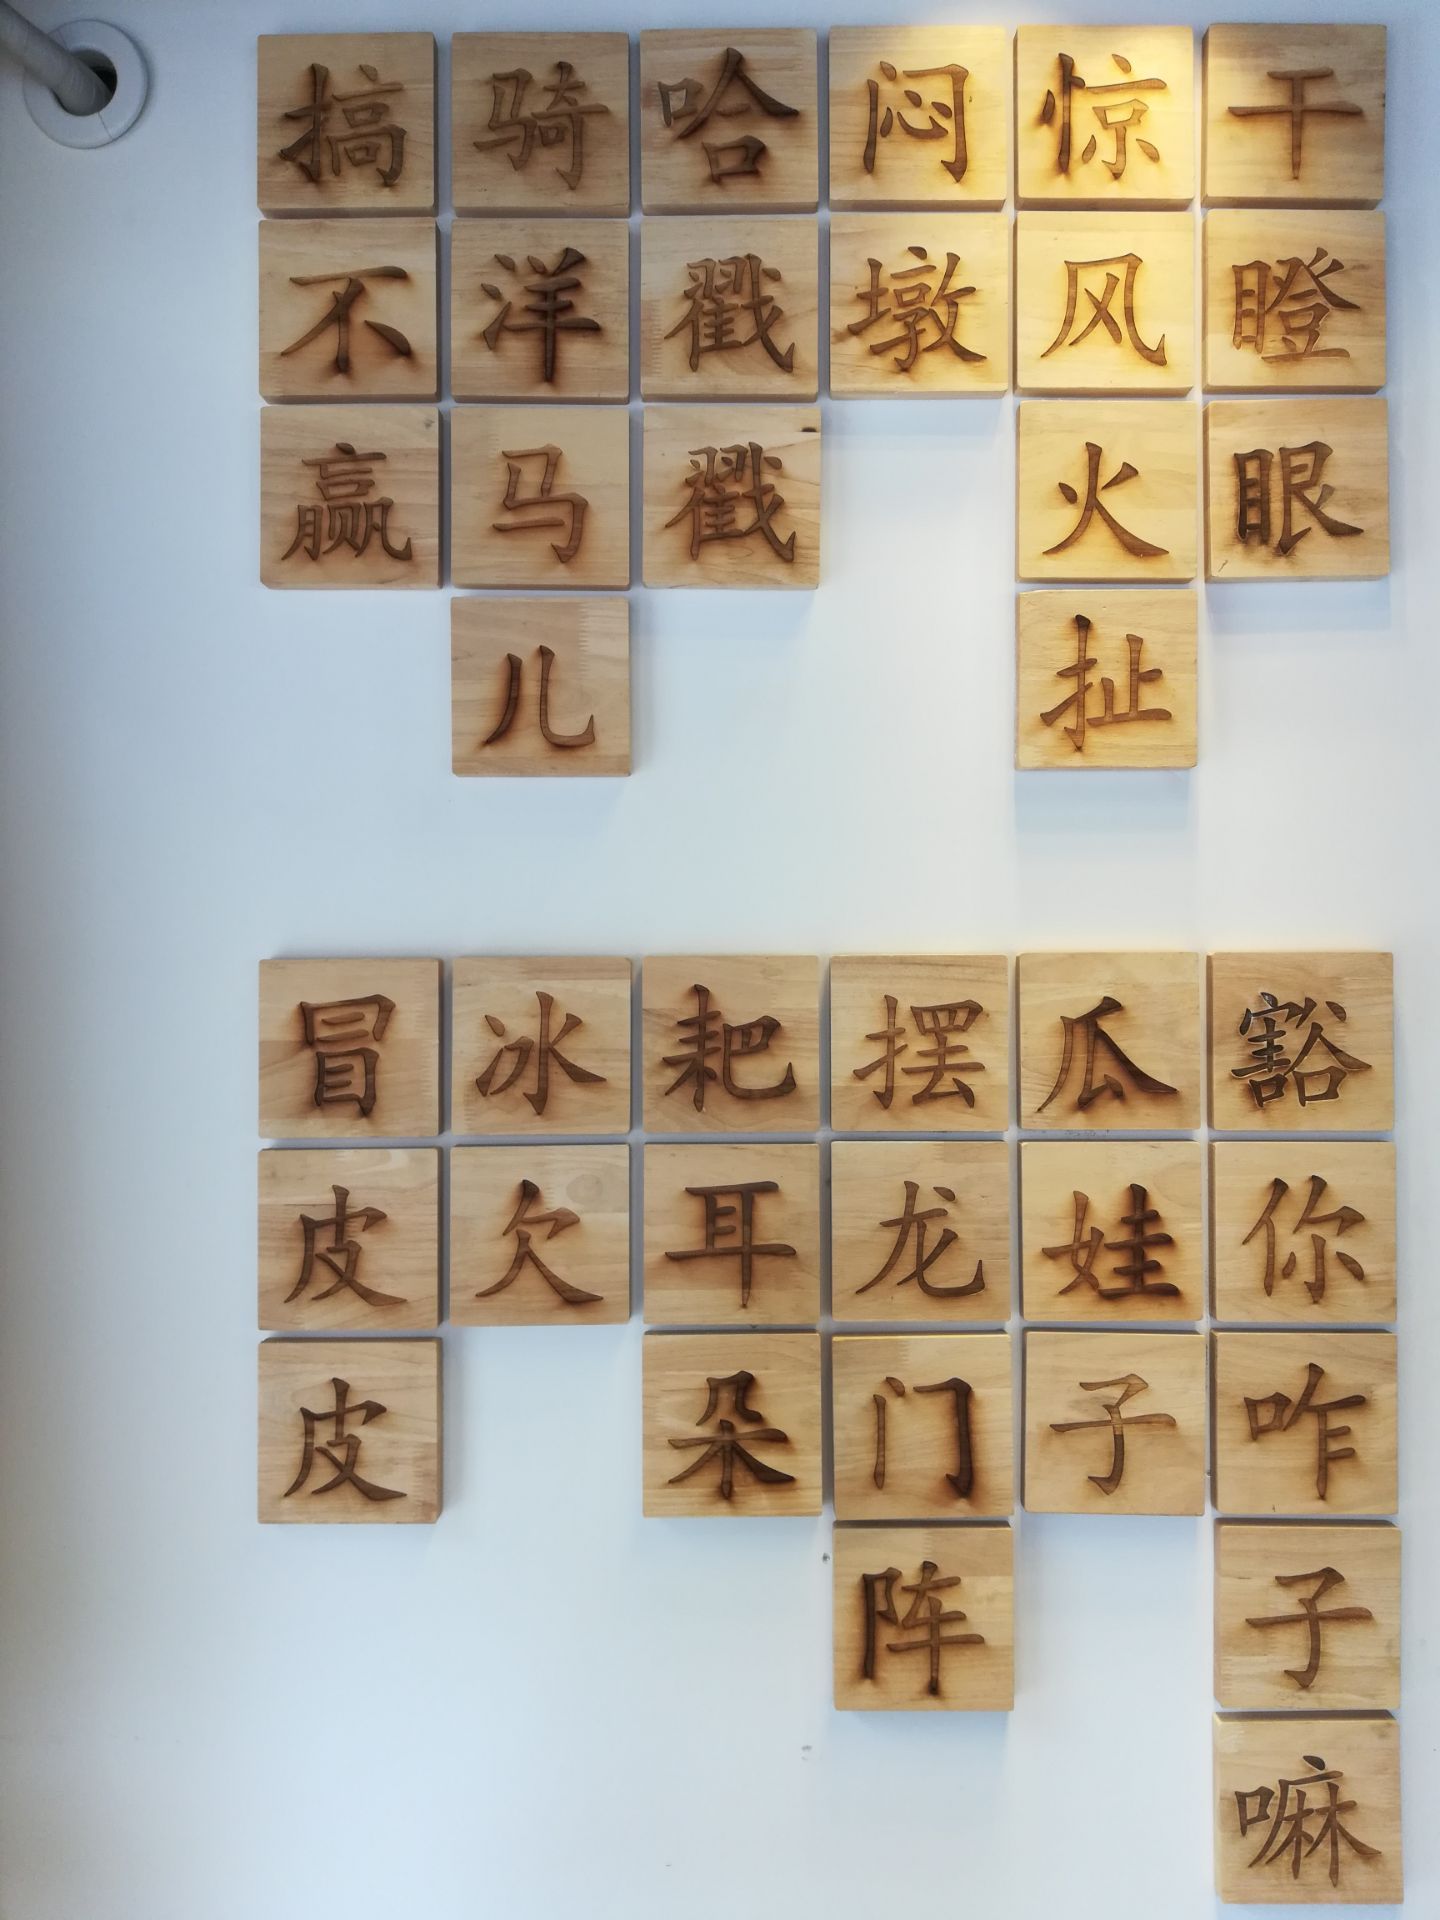 搞不赢
骑洋马儿
哈戳戳
闷墩
惊风火扯
干瞪眼
冒皮皮
冰欠
耙耳朵
摆龙门阵
瓜娃子
豁你咋子嘛